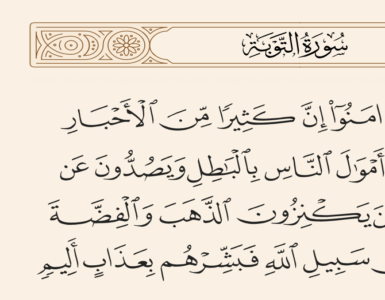 سُورَةُ التَّوْبَةِ
امَنُوٓا۟ إِنَّ كَثِيرًا مِّنَ ٱلْأَحْبَارِ
أَمْوَٰلَ ٱلنَّاسِ بِٱلْبَٰطِلِ وَيَصُدُّونَ عَن
يَكْنِزُونَ ٱلذَّهَبَ وَٱلْفِضَّةَ
سَبِيلِ ٱللَّهِ فَبَشِّرْهُم بِعَذَابٍ أَلِيمٍ